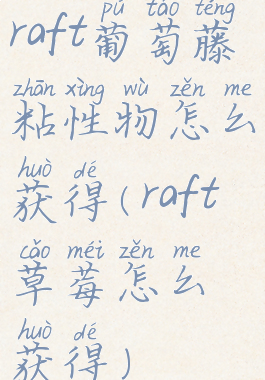 pú táo téng
raft葡萄藤
zhān xìng wù zěn me
粘性物怎么
huò dé
获得(raft
cǎo méi zěn me
草莓怎么
huò dé
获得)